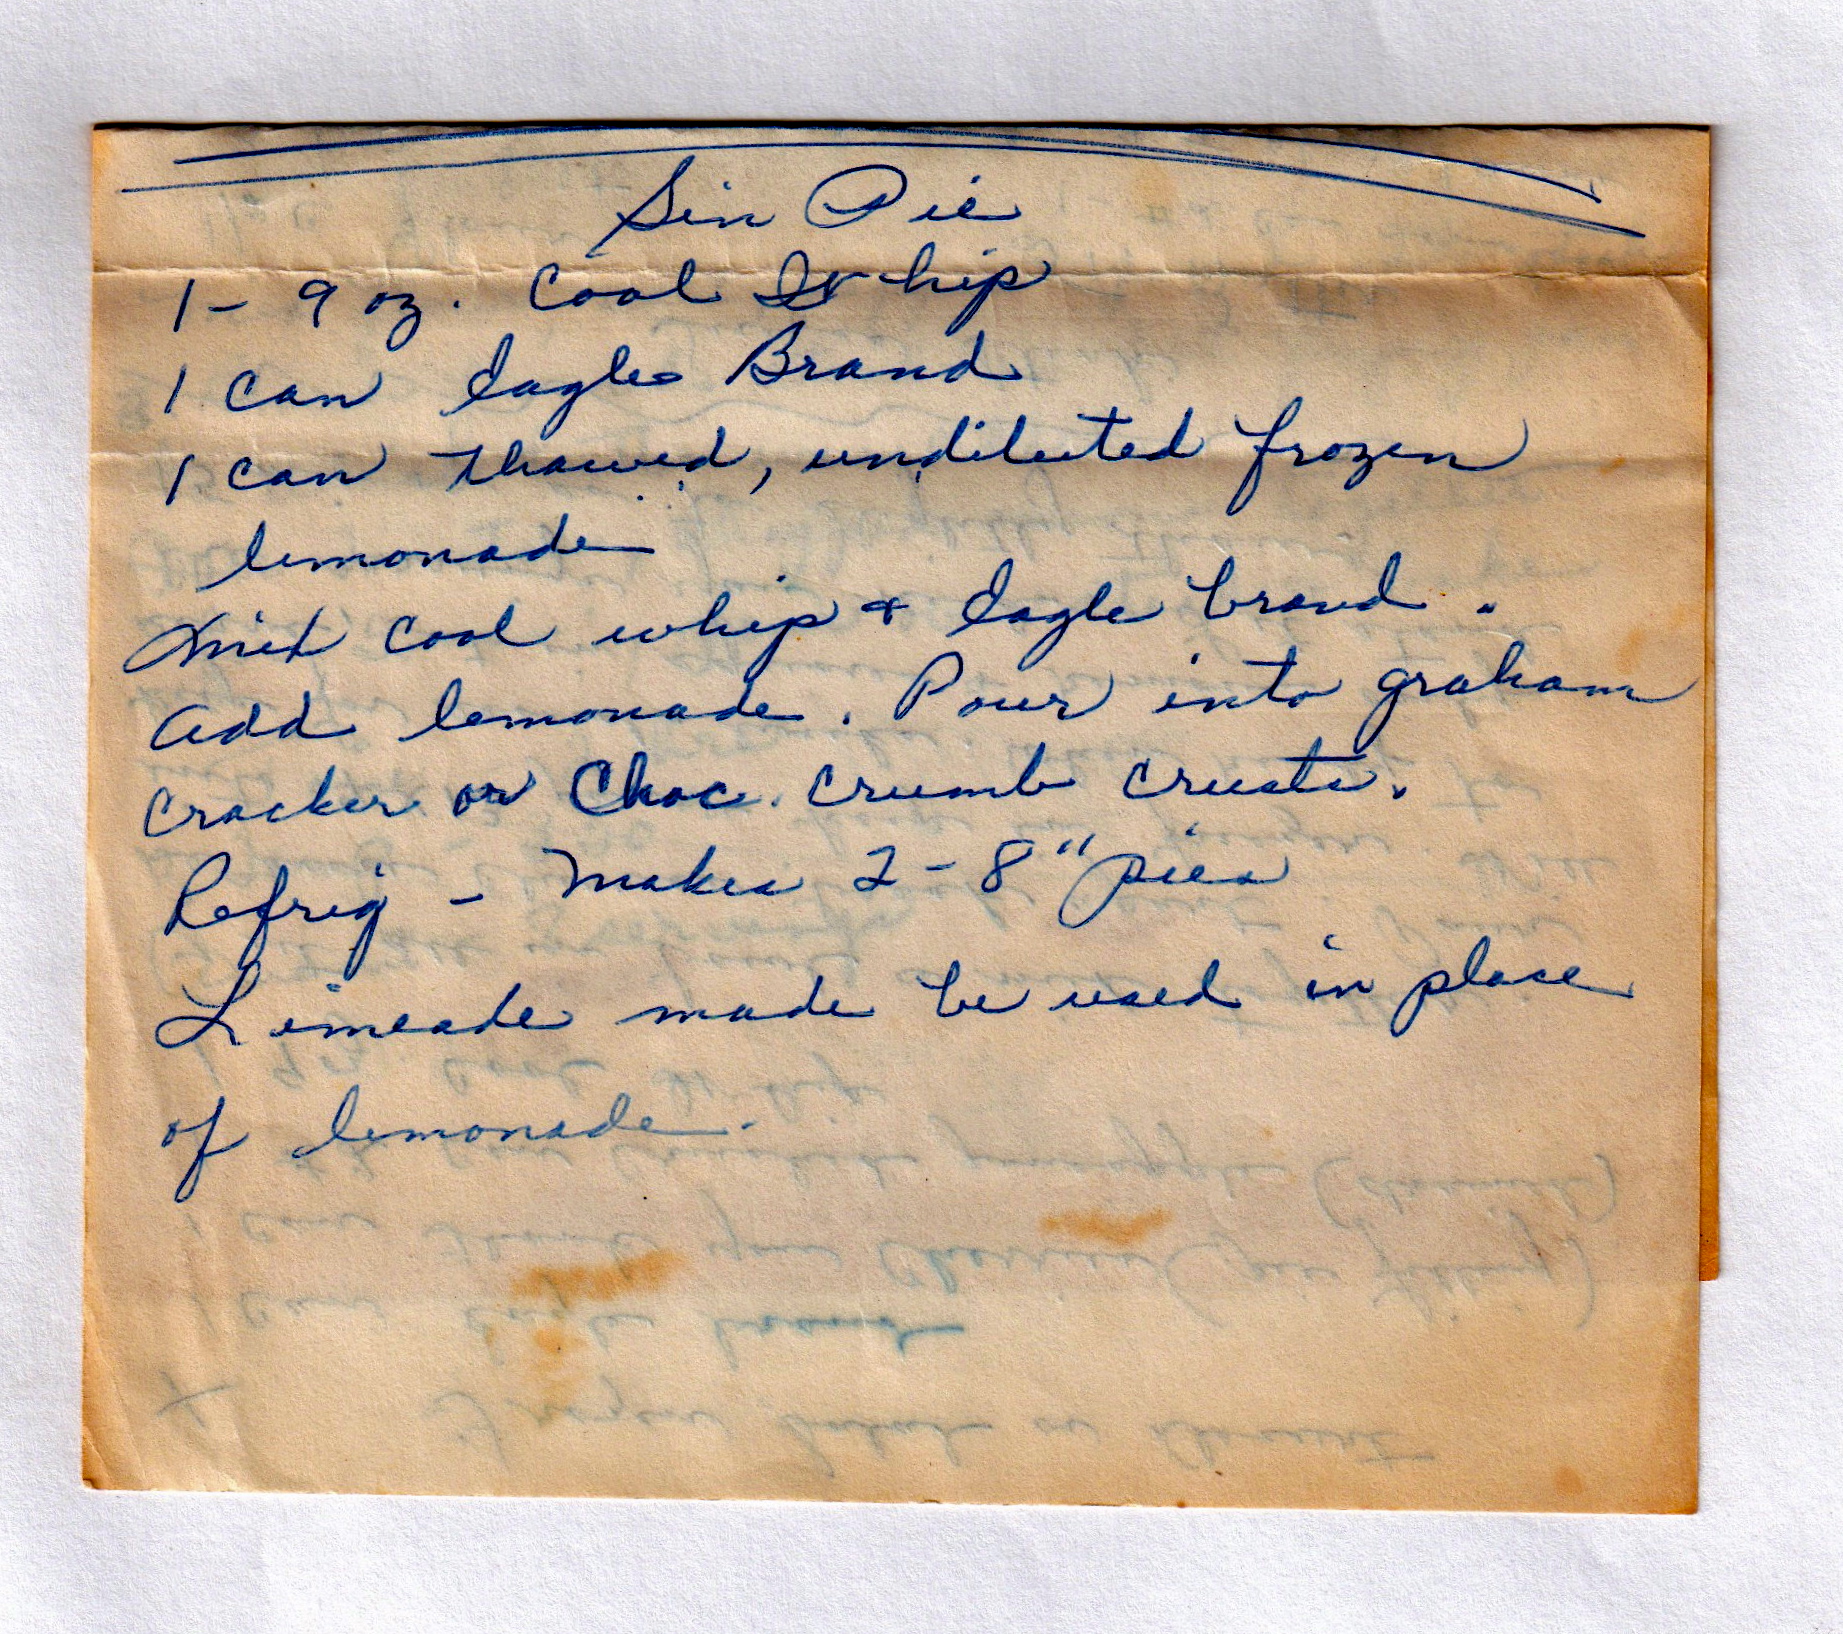 Sin Pie
1 - 9 oz. Cool Whip
1 can Eagle Brand
1 can thawed, undiluted frozen
lemonade
Mix cool whip & Eagle brand.
Add lemonade. Pour into graham
cracker or Choc. crumb crusts.
Refrig - Makes 2 - 8" pies
Limeade made be used in place
of lemonade.